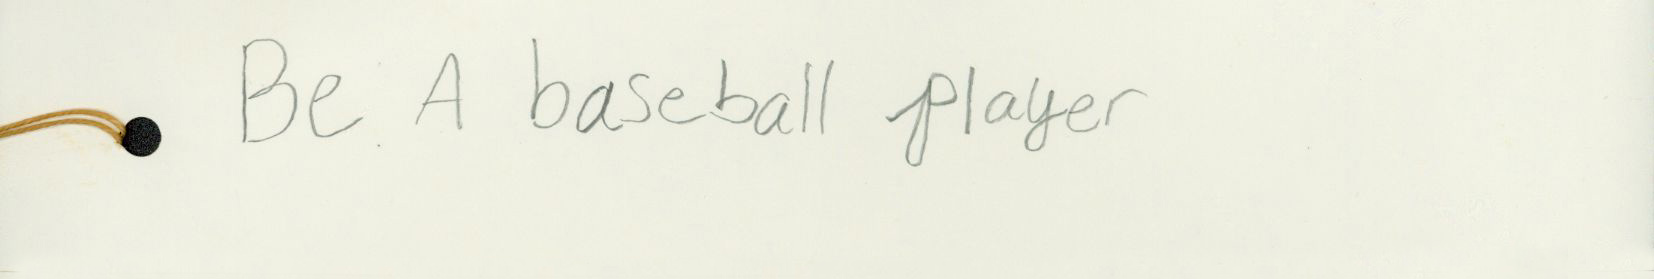 Be A baseball player